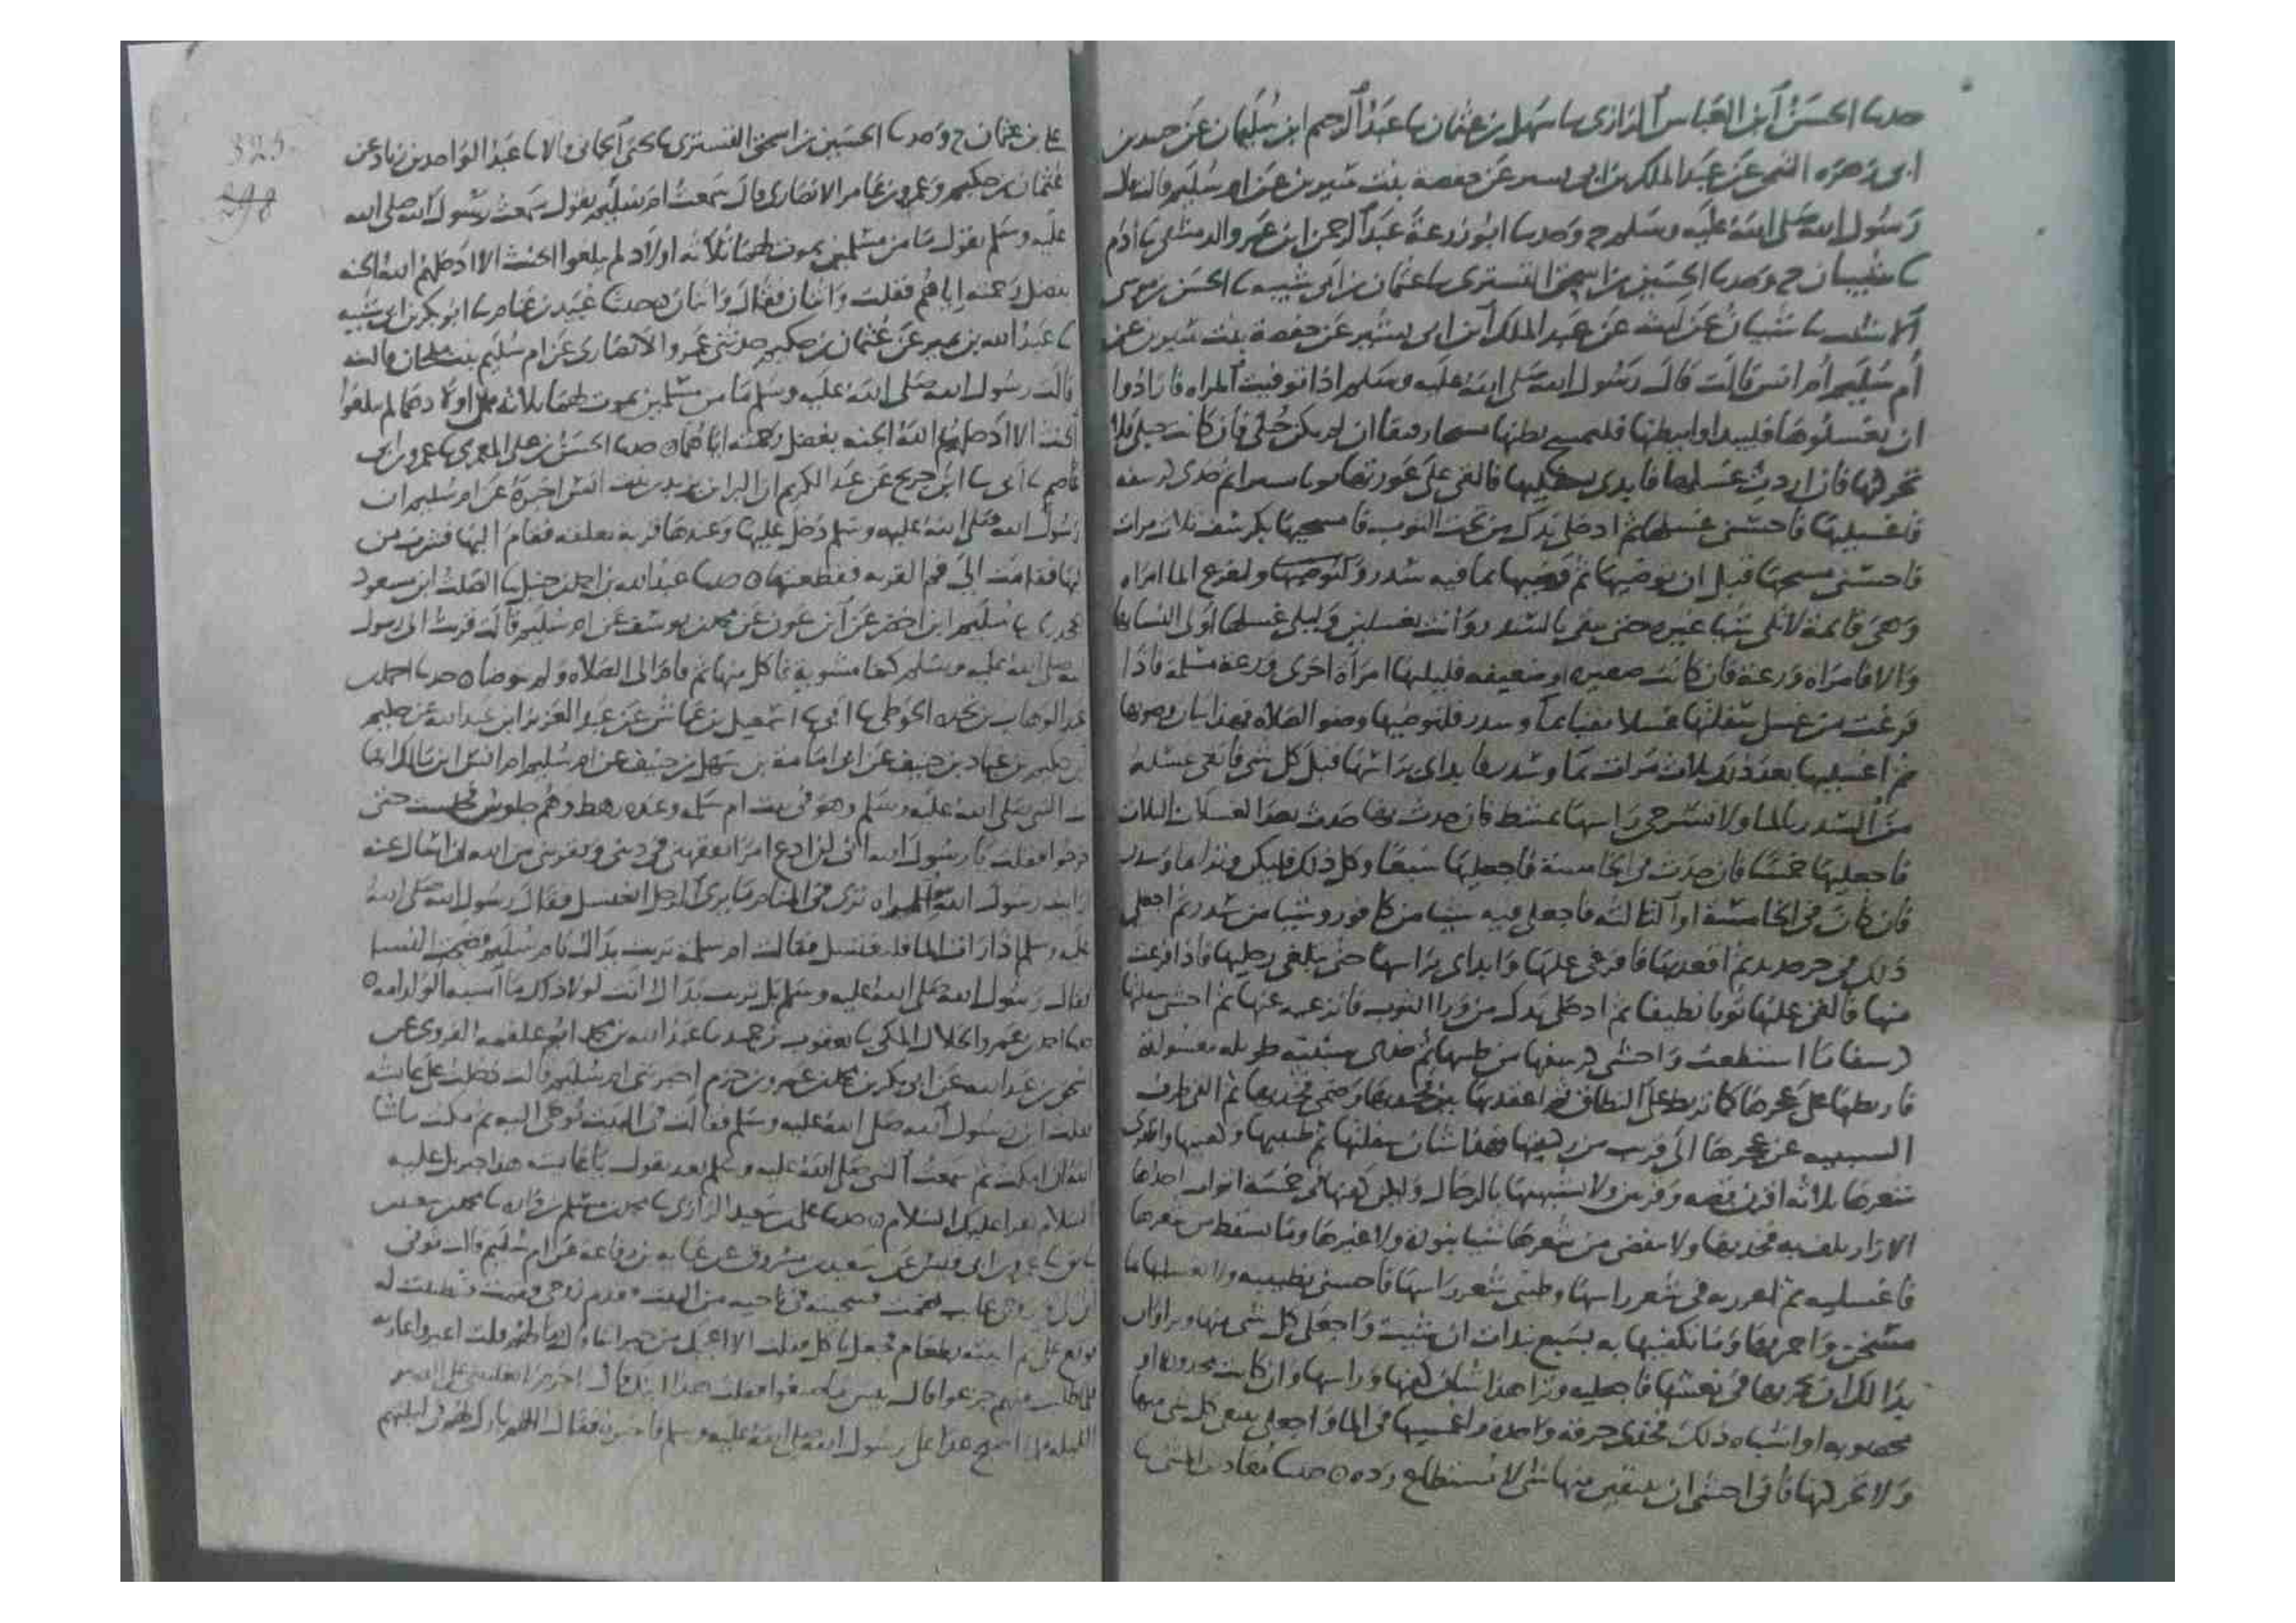 حدثنا الحسن ابن العباس الرازي نا سهل بن عثمان نا عبد الرحيم ابن سليمان عن حميد بن
ابي زهره التيمي عن عبد الملك بن ابي بسير عن حفصة بنت سيرين عن ام سليم قالت قال
رسول الله صلى الله عليه وسلم ح وحدثنا ابو زرعة عبد الرحمن ابن عمرو الدمشقي نا ادم
نا شيبان ح وحدثنا الحسين بن اسحق التستري نا عثمان بن ابي شيبه نا الحسن بن موسى
الاشيب نا شيبان عن ليث عن عبد الملك ابن ابي بشير عن حفصة بنت سيرين عن
ام سليم ام انس قالت قال رسول الله صلى الله عليه وسلم اذا توفيت المراه فارادوا
ان يغسلوها فليبداوا ببطنها فليمسح بطنها مسحا رفيقا ان لم يكن حبلى فان كانت حبلى فلا
تحركها فان اردت غسلها فابدي بسفليها فالقي على عورتها ثوبا ستيرا ثم خذي كرسفه
فاغسليها فاحسني غسلها ثم ادخلي يدك من تحت الثوب فامسحيها بكرسف ثلاث مرات
فاحسني مسحها قبل ان توضيها ثم وضيها بما فيه سدر ولتفرغ الما امراه
وهي قايمة لا تلي شيا غيره حتى تنقي بالسدر وانت تغسلين وليلي غسلها اولى النسا بها
والا فامراه ورعة فان كانت صغيره او ضعيفه فليلها امراة اخرى ورعة مسلمة فاذا
فرغت من غسل سفلتها غسلا نقيا بما وسدر فلتوضيها وضو الصلاه فهذا بيان وضوها
ثم اغسليها بعد ذلك ثلاث مرات بما وسدر فابداي براسها قبل كل شي فانقي غسله
من السدر بالما ولا تسرحي راسها بمشط فان حدث بها حدث بعد الغسلات الثلاث
فاجعليها خمسا فان حدث في الخامسة فاجعليها سبعا وكل ذلك فليكن وترا بما وسدر
فان كان في الخامسة او الثالثه فاجعلي فيه شيا من كافور وشيا من سدر ثم اجعلي
ذلك في جر جديد ثم اقعديها فافرغي عليها وابداي براسها حتى يبلغ رجليها فاذا فرغت
منها فالقي عليها ثوبا نظيفا ثم ادخلي يدك من ورا الثوب فانزعيه عنها ثم احشي سفلتها
كرسفا ما استطعت واحشي كرسفها من طيبها ثم خذي سبنيه طويله مغسولة
فاربطيها على عجزها كما تربط على النطاق ثم اعقديها بين فخذيها وضمي فخذيها ثم القي طرف
السبنيه عن عجزها الى قريب من ركبتيها فهذا شان سفلتها ثم طيبيها وكفنيها واظفري
شعرها ثلاثه اقرن قصه وقرنين ولا تشبهيها بالرجال وليكن كفنها في خمسة اثواب احدها
الازار يلف به فخذيها ولا تنقضي من شعرها شيا بنوره ولا غيرها وما يسقط من شعرها
فاغسليه ثم اغرزيه في شعر راسها وطيبي شعر راسها فاحسني تطييبه ولا تغسليها بما
مسخن واجمريها وما تكفنيها به بسبع نبذات ان شيت واجعلي كل شي منها وترا وان
بدا لك ان تجمريها في نعشها فاجعليه وترا هذا شان كفنها وراسها وان كانت مجدوره او
محصوبه او اشباه ذلك فخذي خرقه واحدة واغمسيها في الما واجعلي تتبعي كل شي منها
ولا تحركيها فاني اخشى ان يتنفس منها شي لا تستطاع رده ٥ حدثنا معاذ بن المثنى نا
علي بن عثمان ح وحدثنا الحسين بن اسحق التستري نا يحيى الحماني قالا نا عبد الواحد بن زياد عن
عثمان بن حكيم وعمرو بن عامر الانصاري قال سمعت ام سليم تقول سمعت رسول الله صلى الله
عليه وسلم يقول ما من مسلمين يموت لهما ثلاثه اولاد لم يبلغوا الحنث الا ادخلهم الله الجنه
بفضل رحمته اياهم فقلت واثنان فقال واثنان حدثنا عبيد بن غنام نا ابو بكر بن ابي شيبه
نا عبد الله بن نمير عن عثمان بن حكيم حدثني عمرو الانصاري عن ام سليم بنت ملحان قالت
قالت رسول الله صلى الله عليه وسلم ما من مسلمين يموت لهما ثلاثه اولاد لهما لم يبلغوا
الحنث الا ادخلهم الله الجنه بفضل رحمته اياهما ٥ حدثنا الحسن بن علي المعمري نا عمرو بن ابي
عاصم نا ابي نا ابن جريج عن عبد الكريم ان البرا بن زيد بن بنت انس اخبره عن ام سليم ان
رسول الله صلى الله عليه وسلم دخل عليها وعندها قربه معلقه فقام اليها فشرب من
فيها فقامت الى فم القربه فقطعتها ٥ حدثنا عبد الله بن احمد بن حنبل نا الصلت ابن مسعود
الجحدري نا سليم ابن اخضر عن ابن عون عن محمد بن يوسف عن ام سليم قالت قربت الى رسول
الله صلى الله عليه وسلم كتفا مشويه فاكل منها ثم قام الى الصلاه ولم يتوضا ٥ حدثنا احمد بن
عبد الوهاب بن نجده الحوطي نا ابي نا اسمعيل بن عياش عن عبد العزيز ابن عبيد الله عن حكيم
بن حكيم بن عباد بن حنيف عن ابي امامة بن سهل بن حنيف عن ام سليم ام انس ابن مالك انها
اتت النبي صلى الله عليه وسلم وهو في بيت ام سلمه وعنده رهط وهم جلوس فجلست حتى
خرجوا فقلت يا رسول الله اني لن ادع امرا يفقهني في ديني ويقربني من الله ان اسال عنه
ارايت رسول الله المراه ترى في المنام ما يرى الرجل اتغتسل فقال رسول الله صلى الله
عليه وسلم اذا رات الما فلتغتسل فقالت ام سلمة تربت يداك يا ام سليم فضحت النسا
فقال رسول الله صلى الله عليه وسلم بل تربت يداك انت لولا ذلك ما اشبه الولد امه ٥
حدثنا احمد بن عمرو الخلال المكي نا يعقوب بن حميد نا عبد الله بن محمد ابو علقمه الفروي عن
عبد الله عن ابي بكر بن محمد بن عمرو بن حزم اخبرتني ام سليم قالت دخلت على عايشه
فقلت اين رسول الله صلى الله عليه وسلم فقالت في البيت يوحى اليه ثم مكثت ما شا
الله ان امكث ثم سمعت النبي صلى الله عليه وسلم بعد يقول يا عايشه هذا جبريل عليه
السلام يقرا عليك السلام ٥ حدثنا علي بن سعيد الرازي نا محمد بن مسلم بن واره نا محمد بن سعيد بن
سابق نا عمرو بن ابي قيس عن سعيد بن مسروق عن عبايه بن رفاعه عن ام سليم قالت توفي
ابن لي وزوجي غايب فقمت فسجيته في ناحيه من البيت فقدم زوجي فقمت فتطيبت له
فوقع علي ثم اتيته بطعام فجعل ياكل فقلت الا اعجبك من جيراننا قال وما لهم قلت اعيروا عاريه
فلما طلبت منهم جزعوا فقال بيس ما صنعوا فقلت هذا ابنك فقال لا جرم لا تغلبيني على الصبر
الليله فلما اصبح غدا على رسول الله صلى الله عليه وسلم فاخبره فقال اللهم بارك لهم في ليلتهم
325